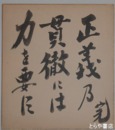 正義乃
貫徹には
力を要す
とらや書房